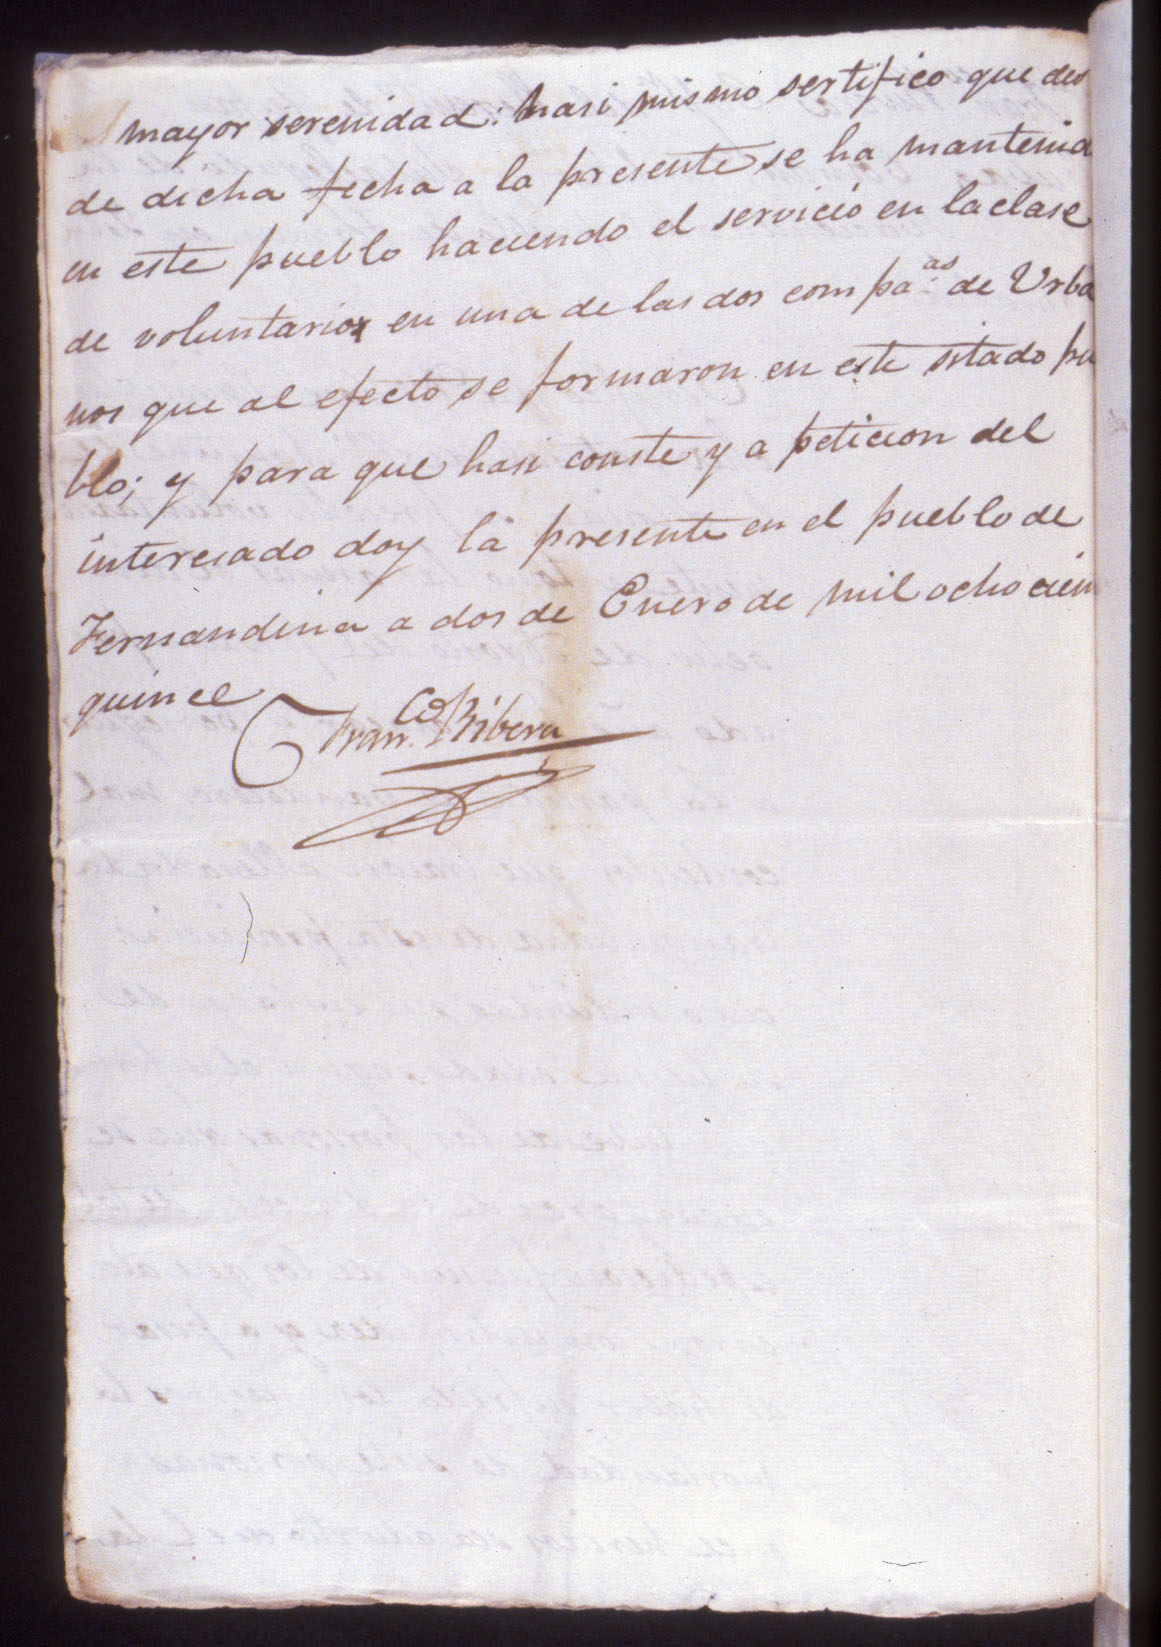 mayor serenidad: hasi mismo sertifico que des
de dicha fecha a la presente se ha mantenid
en este pueblo haciendo el servicio en la clase
de voluntario en una de las dos compa.as de Urba
nos que al efecto se formaron en este sitado pu
blo; y para que hasi conste y a peticion del
interesado doy la presente en el pueblo de
Fernandina a dos de Enero de mil ocho cien
quince
Fran.co Ribera